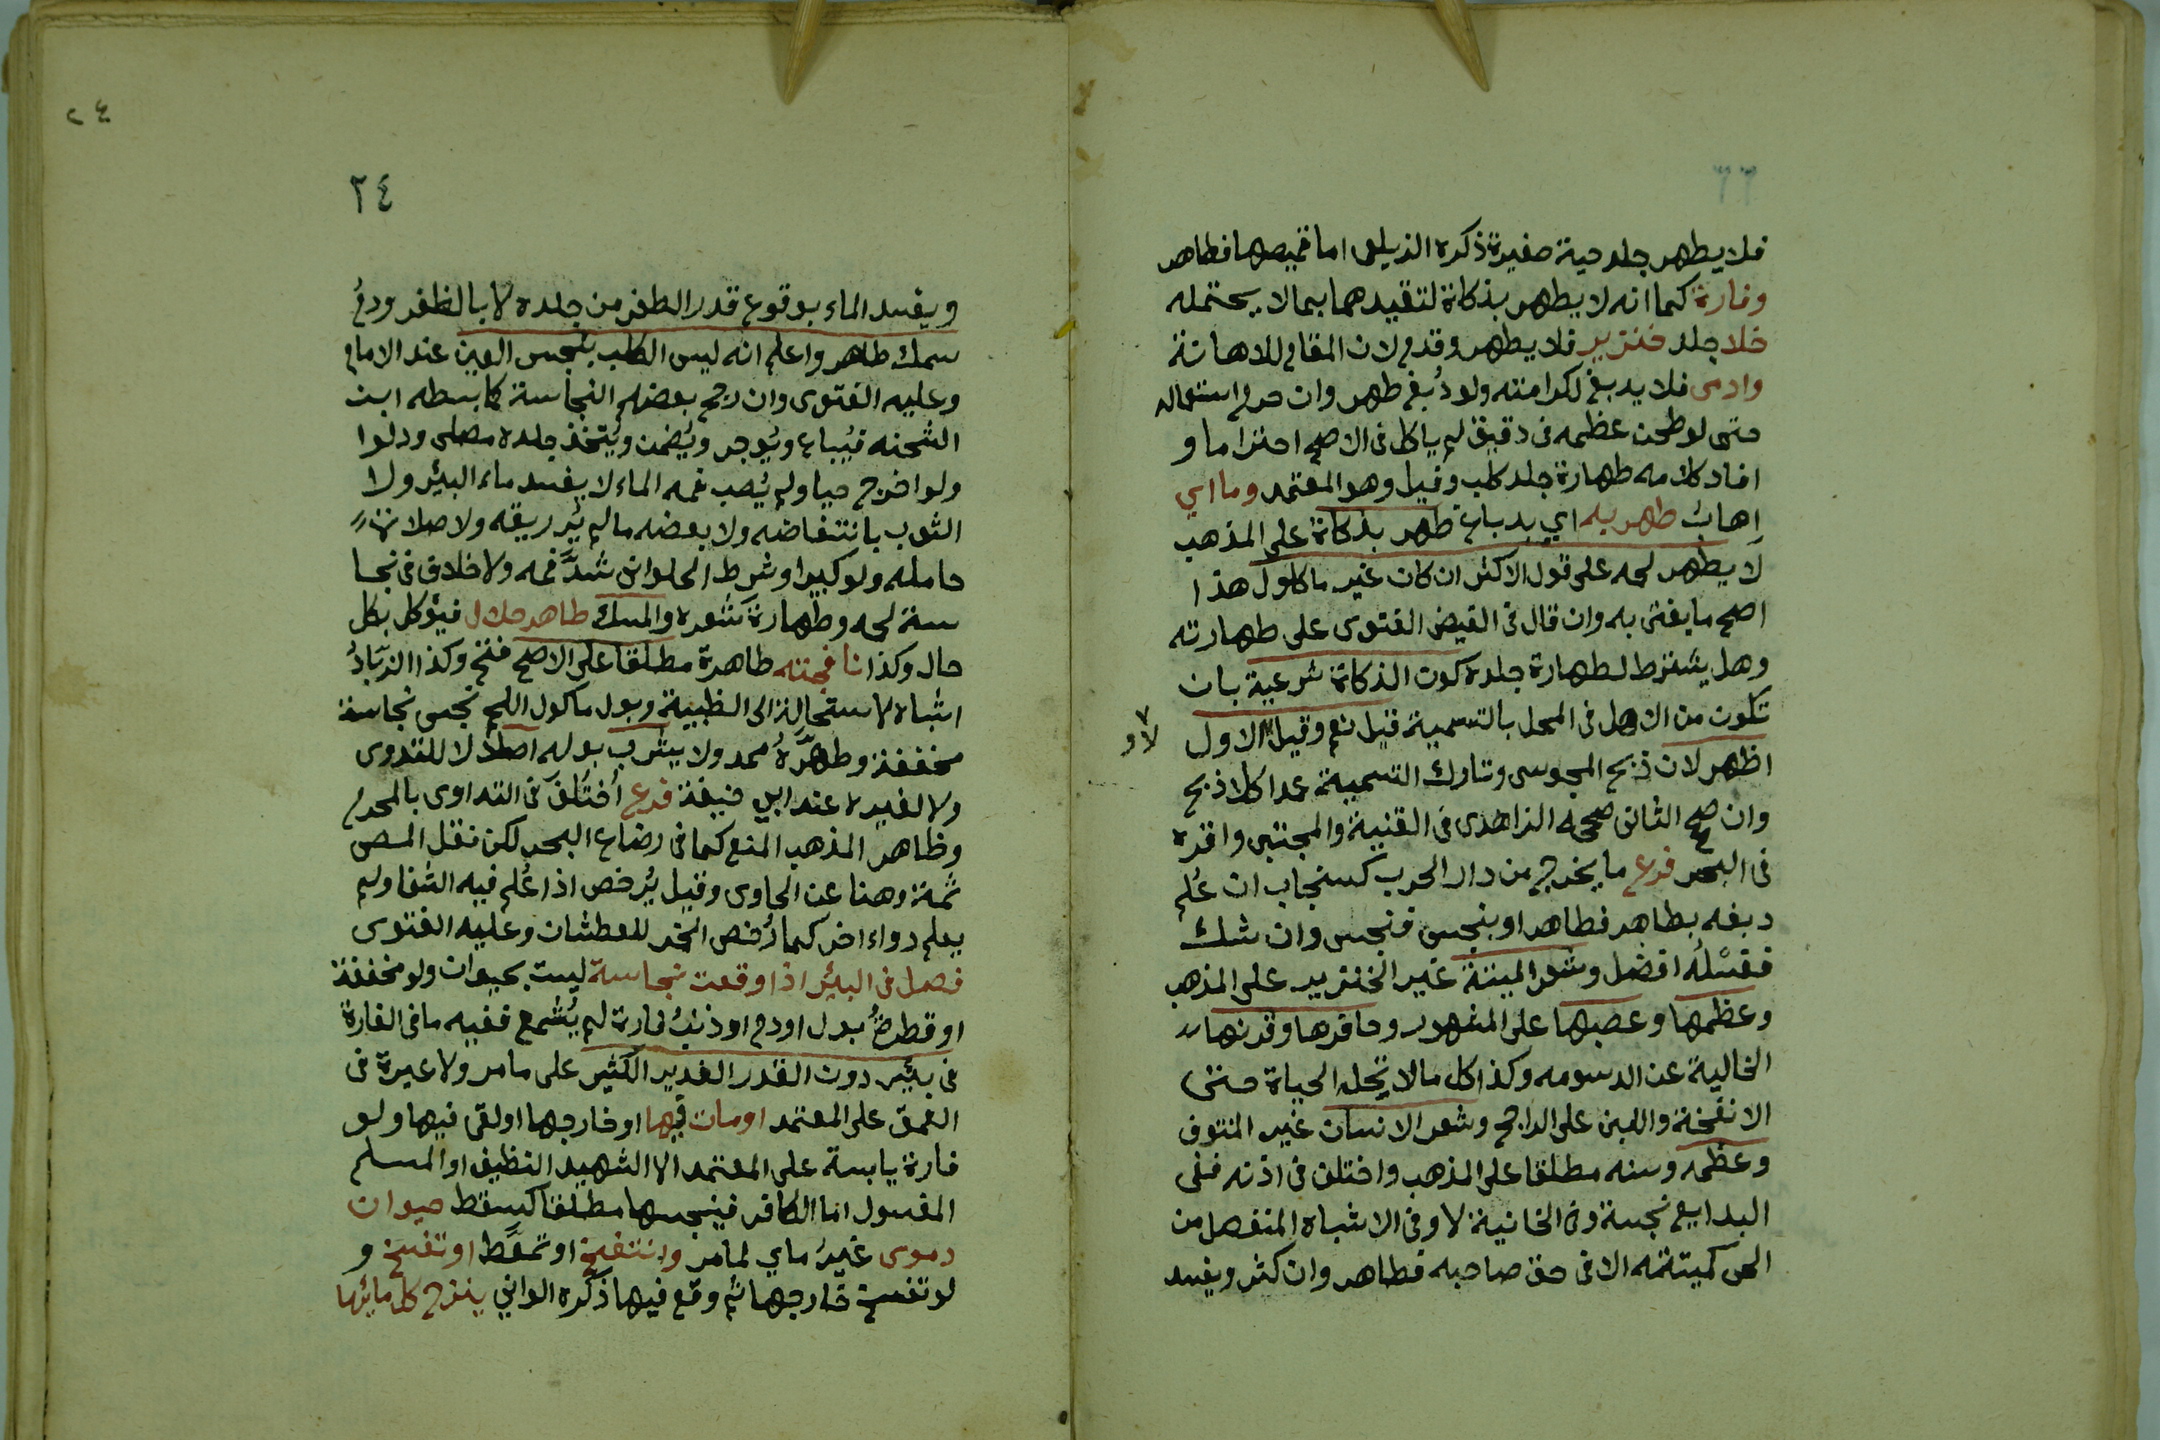 فلا يطهر جلد حية صغيرة ذكره الزيلعي اما قميصها فطاهر
وفارة كما انه لا يطهر بذكاة لتقيدهما بما لا يحتمله
خلا جلد خنزير فلا يطهر وقدم لان المقام للاهانة
وادمى فلا يدبغ لكرامته ولو دُبغ طهر وان حرم استعماله
حتى لو طحن عظمه فى دقيق لم ياكل فى الاصح احتراما و
افاد كلامه طهارة جلد كلب وفيل وهو المعتمد وما اي
اهابُ طهر به اي بدباغ طهر بذكاة على المذهب
لا يطهر لحمه على قول الاكثر ان كان غير ماكول هذا
اصح ما يفتى به وان قال فى الفيض الفتوى على طهارته
وهل يشترط لطهارة جلده كون الذكاة شرعية بان
تكون من الاهل فى المحل بالتسمية قيل نعم وقيل الاول
لا و
اظهر لان ذبح المجوسى وتارك التسمية عمدا كلا ذبح
وان صح الثانى صححه الزاهدى فى القنية والمجتبى واقره
فى البحر فرع ما يخرج من دار الحرب كسنجاب ان عُلم
دبغه بطاهر فطاهر او بنجس فنجس وان شك
فغسْلُه افضل وشعر الميتة غير الخنزير على المذهب
وعظمها وعصبها على المشهور وحافرها وقرنها
الخالية عن الدسومه وكذا كل ما لا تحله الحياة حتى
الانفخة واللبن على الراجح وشعر الانسان غير المنتوف
وعظمه وسنه مطلقا على المذهب واختلف فى اذنه ففى
البدايع نجسة وفى الخانية لا وفى الاشباه المنفصل من
الحى كميتته الا فى حق صاحبه فطاهر وان كثر ويفسد
٢٤
٢٤
ويفسد الماء بوقوع قدر الظفر من جلده لا بالظفر ودمُ
سمك طاهر واعلم انه ليس الكلب بنجس العين عند الامام
وعليه الفتوى وان رجح بعضهم النجاسة كما بسطه ابن
الشحنه فيُباع ويُوجر ويُضمن ويُتخذ جلده مصلى ودلوا
ولو اخرج حيا ولم يُصب فمه الماء لا يفسد ماء البئر ولا
الثوب بانتفاضه ولا بعضه ما لم يُر ريقه ولا صلاة
حامله ولو كبيرا وشرط الحلوانى شدَّ فمه ولا خلاف فى نجا
سة لحمه وطهارة شعره والمسك طاهر حلال فيؤكل بكل
حال وكذا نافجته طاهرة مطلقا على الاصح فتح وكذا الزبَادُ
اشباه لاستحالة الى الطيبية وبول ماكول اللحم نجس نجاسة
مخففة وطهَّرهُ محمد ولا يشرب بوله اصلا لا للتدوى
ولا لغيره عند ابى حنيفة فرع اُختُلف فى التداوى بالمحرم
وظاهر المذهب المنع كما فى رضاع البحر لكن نقل المصى
ثمة وهنا عن الحاوى وقيل يُرخص اذا عُلم فيه الشفا ولم
يعلم دواء اخر كما رُخص الخمر للعطشان وعليه الفتوى
فصل فى البئر اذا وقعت نجاسة ليست بحيوان ولو مخففة
او قطرةُ بول او دم او ذنبُ فارة لم يُشمع ففيه ما فى الفارة
فى بئير دون القدر الغدير الكثير على ما مر ولا عبرة فى
العمق على المعتمد او مات فيها او خارجها او لقى فيها ولو
فارة يابسة على المعتمد الا الشهيد النظيف او المسلم
المغسول اما الكافر فينجسها مطلقا كسقط حيوان
دموى غيرُ ماي لما مر وانتفخ او تمعّط او تفسخ و
لو تفسخ خارجها ثم وقع فيها ذكره الوانى ينزح كل مائها